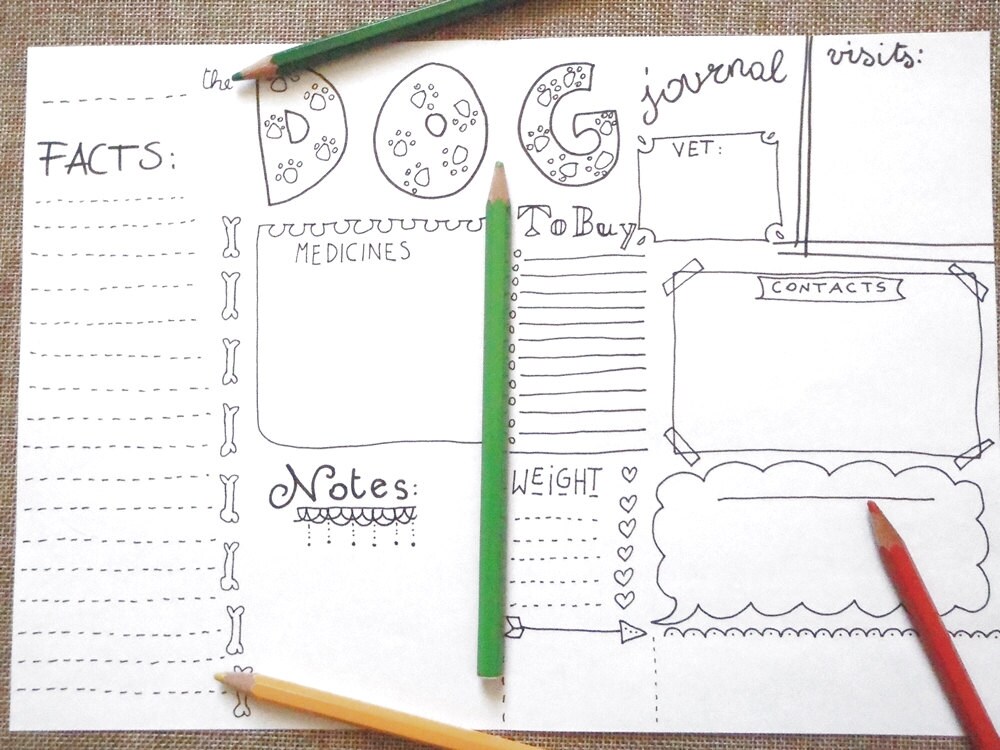 the DOG journal
visits:
FACTS:
VET:
To Buy
MEDICINES
CONTACTS
Notes:
WEiGHT